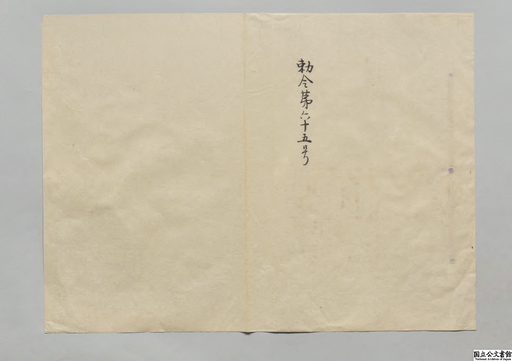 勅令第六十五号
国立公文書館
National Archives of Japan